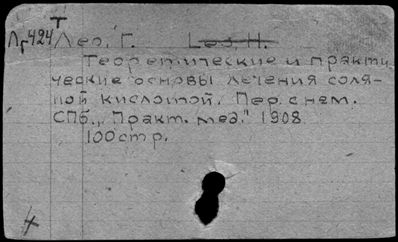 Т
Лг424 Лео, Г. Leo. H.
Теоретические и практи
ческие основы лечения соля-
ной кислотой. Пер. с нем.
СПб., "Практ. мед." 1908.
100 стр.